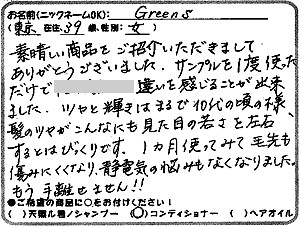 お名前(ニックネームOK): Greens
(東京 在住, 39 歳,性別: 女 )
素晴しい商品をご紹介いただきまして
ありがとうございました。サンプルを1度使った
だけで 違いを感じることが出来
ました。ツヤと輝きはまるで10代の頃の様。
髪のツヤがこんなにも見た目の若さを左右
するとはびっくりです。1ヵ月使ってみて毛先も
傷みにくくなり、静電気の悩みもなくなりました。
もう手離せません!!
●ご希望の商品に○をお付けください!
( )天然ル種ノシャンプー (○)コンディショナー ( )ヘアオイル